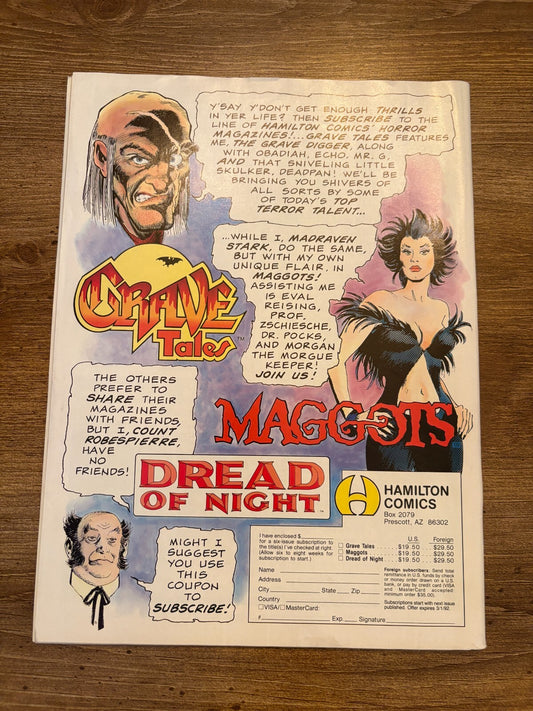 Y'SAY Y'DON'T GET ENOUGH THRILLS
IN YER LIFE? THEN SUBSCRIBE TO THE
LINE OF HAMILTON COMICS' HORROR
MAGAZINES!...GRAVE TALES FEATURES
ME, THE GRAVE DIGGER, ALONG
WITH OBADIAH, ECHO, MR. G,
AND THAT SNIVELING LITTLE
SKULKER, DEADPAN! WE'LL BE
BRINGING YOU SHIVERS OF
ALL SORTS BY SOME
OF TODAY'S TOP
TERROR TALENT...
...WHILE I, MADRAVEN
STARK, DO THE SAME,
BUT WITH MY OWN
UNIQUE FLAIR, IN
MAGGOTS!
ASSISTING ME
IS EVAL
REISING,
PROF.
ZSCHIESCHE,
DR. POCKS,
AND MORGAN
THE MORGUE
KEEPER!
JOIN US!
GRAVE
Tales™
MAGGOTS
THE OTHERS
PREFER TO
SHARE THEIR
MAGAZINES
WITH FRIENDS,
BUT I, COUNT
ROBESPIERRE,
HAVE
NO
FRIENDS!
DREAD
OF NIGHT™
MIGHT I
SUGGEST
YOU USE
THIS
COUPON
TO
SUBSCRIBE!
H
HAMILTON
COMICS
Box 2079
Prescott, AZ 86302
I have enclosed $
for a six-issue subscription to
the title(s) I've checked at right.
(Allow six to eight weeks for
subscription to start.)
U.S. Foreign
☐ Grave Tales ..... $19.50 ... $29.50
☐ Maggots ..... $19.50 ... $29.50
☐ Dread of Night .. $19.50 ... $29.50
Name
Address
City State Zip
Country
☐VISA/☐MasterCard:
# Exp. Signature
Foreign subscribers: Send total
remittance in U.S. funds by check
or money order drawn on a U.S.
bank, or pay by credit card (VISA
and MasterCard accepted
minimum order $35.00).
Subscriptions start with next issue
published. Offer expires 3/1/92.